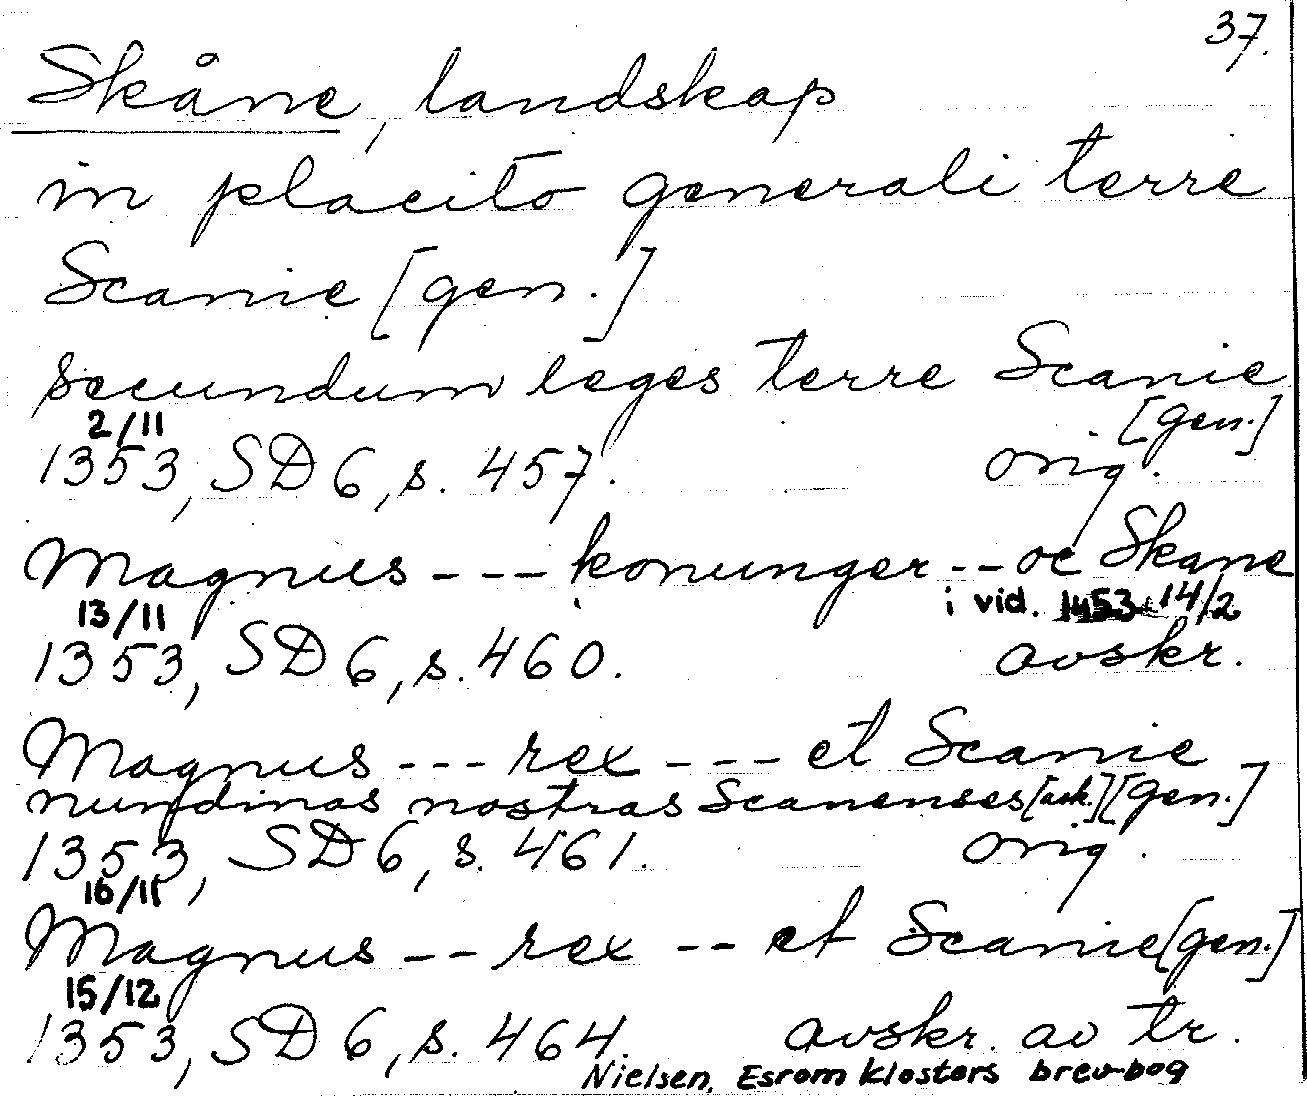 37.
Skåne, landskap
in placito generali terre
Scanie [gen.]
secundum leges terre Scanie
[gen.]
2/11
1353, SD 6, s. 457. orig.
Magnus --- konunger -- oc Skane
13/11 i vid. 1453 14/2
1353, SD 6, s. 460. avskr.
Magnus --- rex --- et Scanie
nundinas nostras Scanenses [ack.] [gen.]
1353, SD 6, s. 461. orig.
16/11
Magnus -- rex -- et Scanie [gen.]
15/12
1353, SD 6, s. 464. avskr. av tr.
Nielsen, Esrom klosters brev-bog